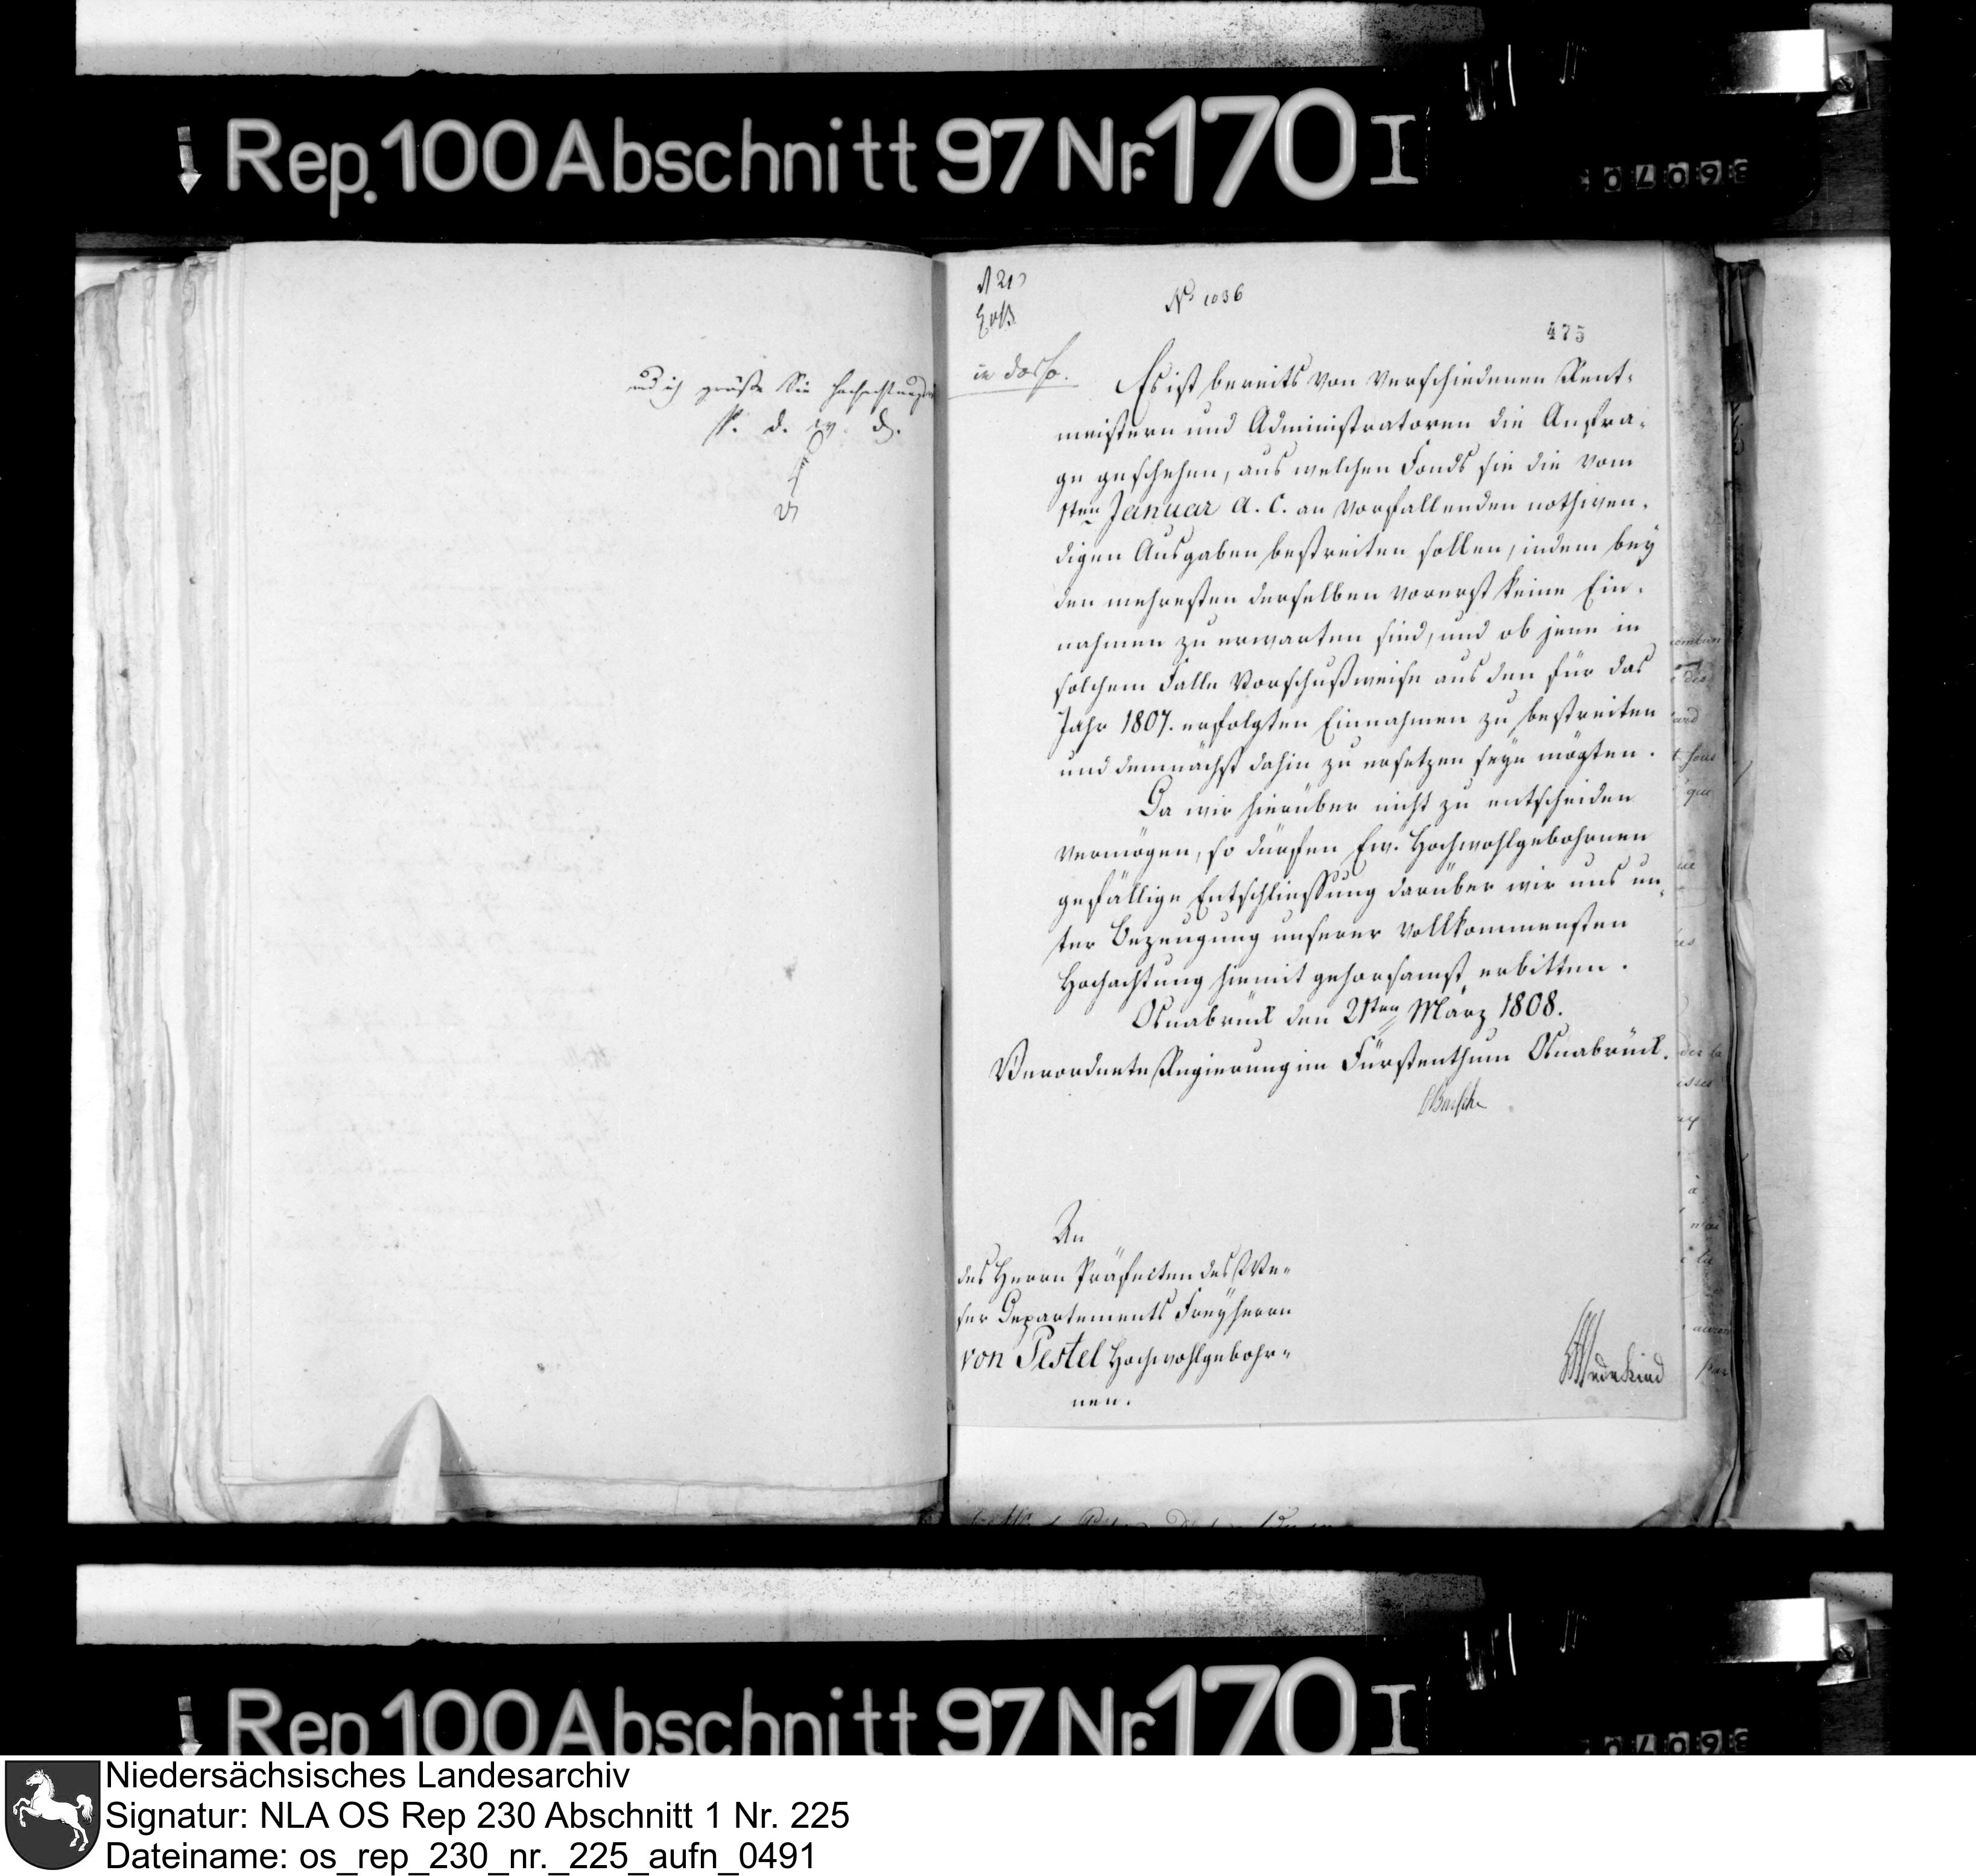 Rep. 100 Abschnitt 97 Nr. 170 I
und ich grüße Sie
P. d. W. D.
No 1036
475
in dorso.
Es ist bereits von verschiedenen Rent-
meistern und Administratoren die Anfra-
ge geschehen, aus welchen Fonds sie die vom
1sten Januar a. c. an vorfallenden nothwen-
digen Ausgaben bestreiten sollen, indem bey
den mehresten derselben vorerst keine Ein-
nahmen zu erwarten sind, und ob jene in
solchem Falle Vorschußweise aus den für das
Jahr 1807. erfolgten Einnahmen zu bestreiten
und demnächst dahin zu ersetzen seyn mögten.
Da wir hierüber nicht zu entscheiden
vermögen, so dürfen Ew. Hochwohlgebohrnen
gefällige Entschliessung darüber wir uns un-
ter Bezeugung unserer vollkommensten
Hochachtung hiemit gehorsamst erbitten.
Osnabrück den 21sten März 1808.
Verordnete Regierung im Fürstenthum Osnabrück.
Busche
An
des Herrn Präfecten des We-
ser Departements Freyherrn
von Pestel Hochwohlgebohr-
nen.
Wedekind
Rep 100 Abschnitt 97 Nr. 170 I
Niedersächsisches Landesarchiv
Signatur: NLA OS Rep 230 Abschnitt 1 Nr. 225
Dateiname: os_rep_230_nr._225_aufn_0491